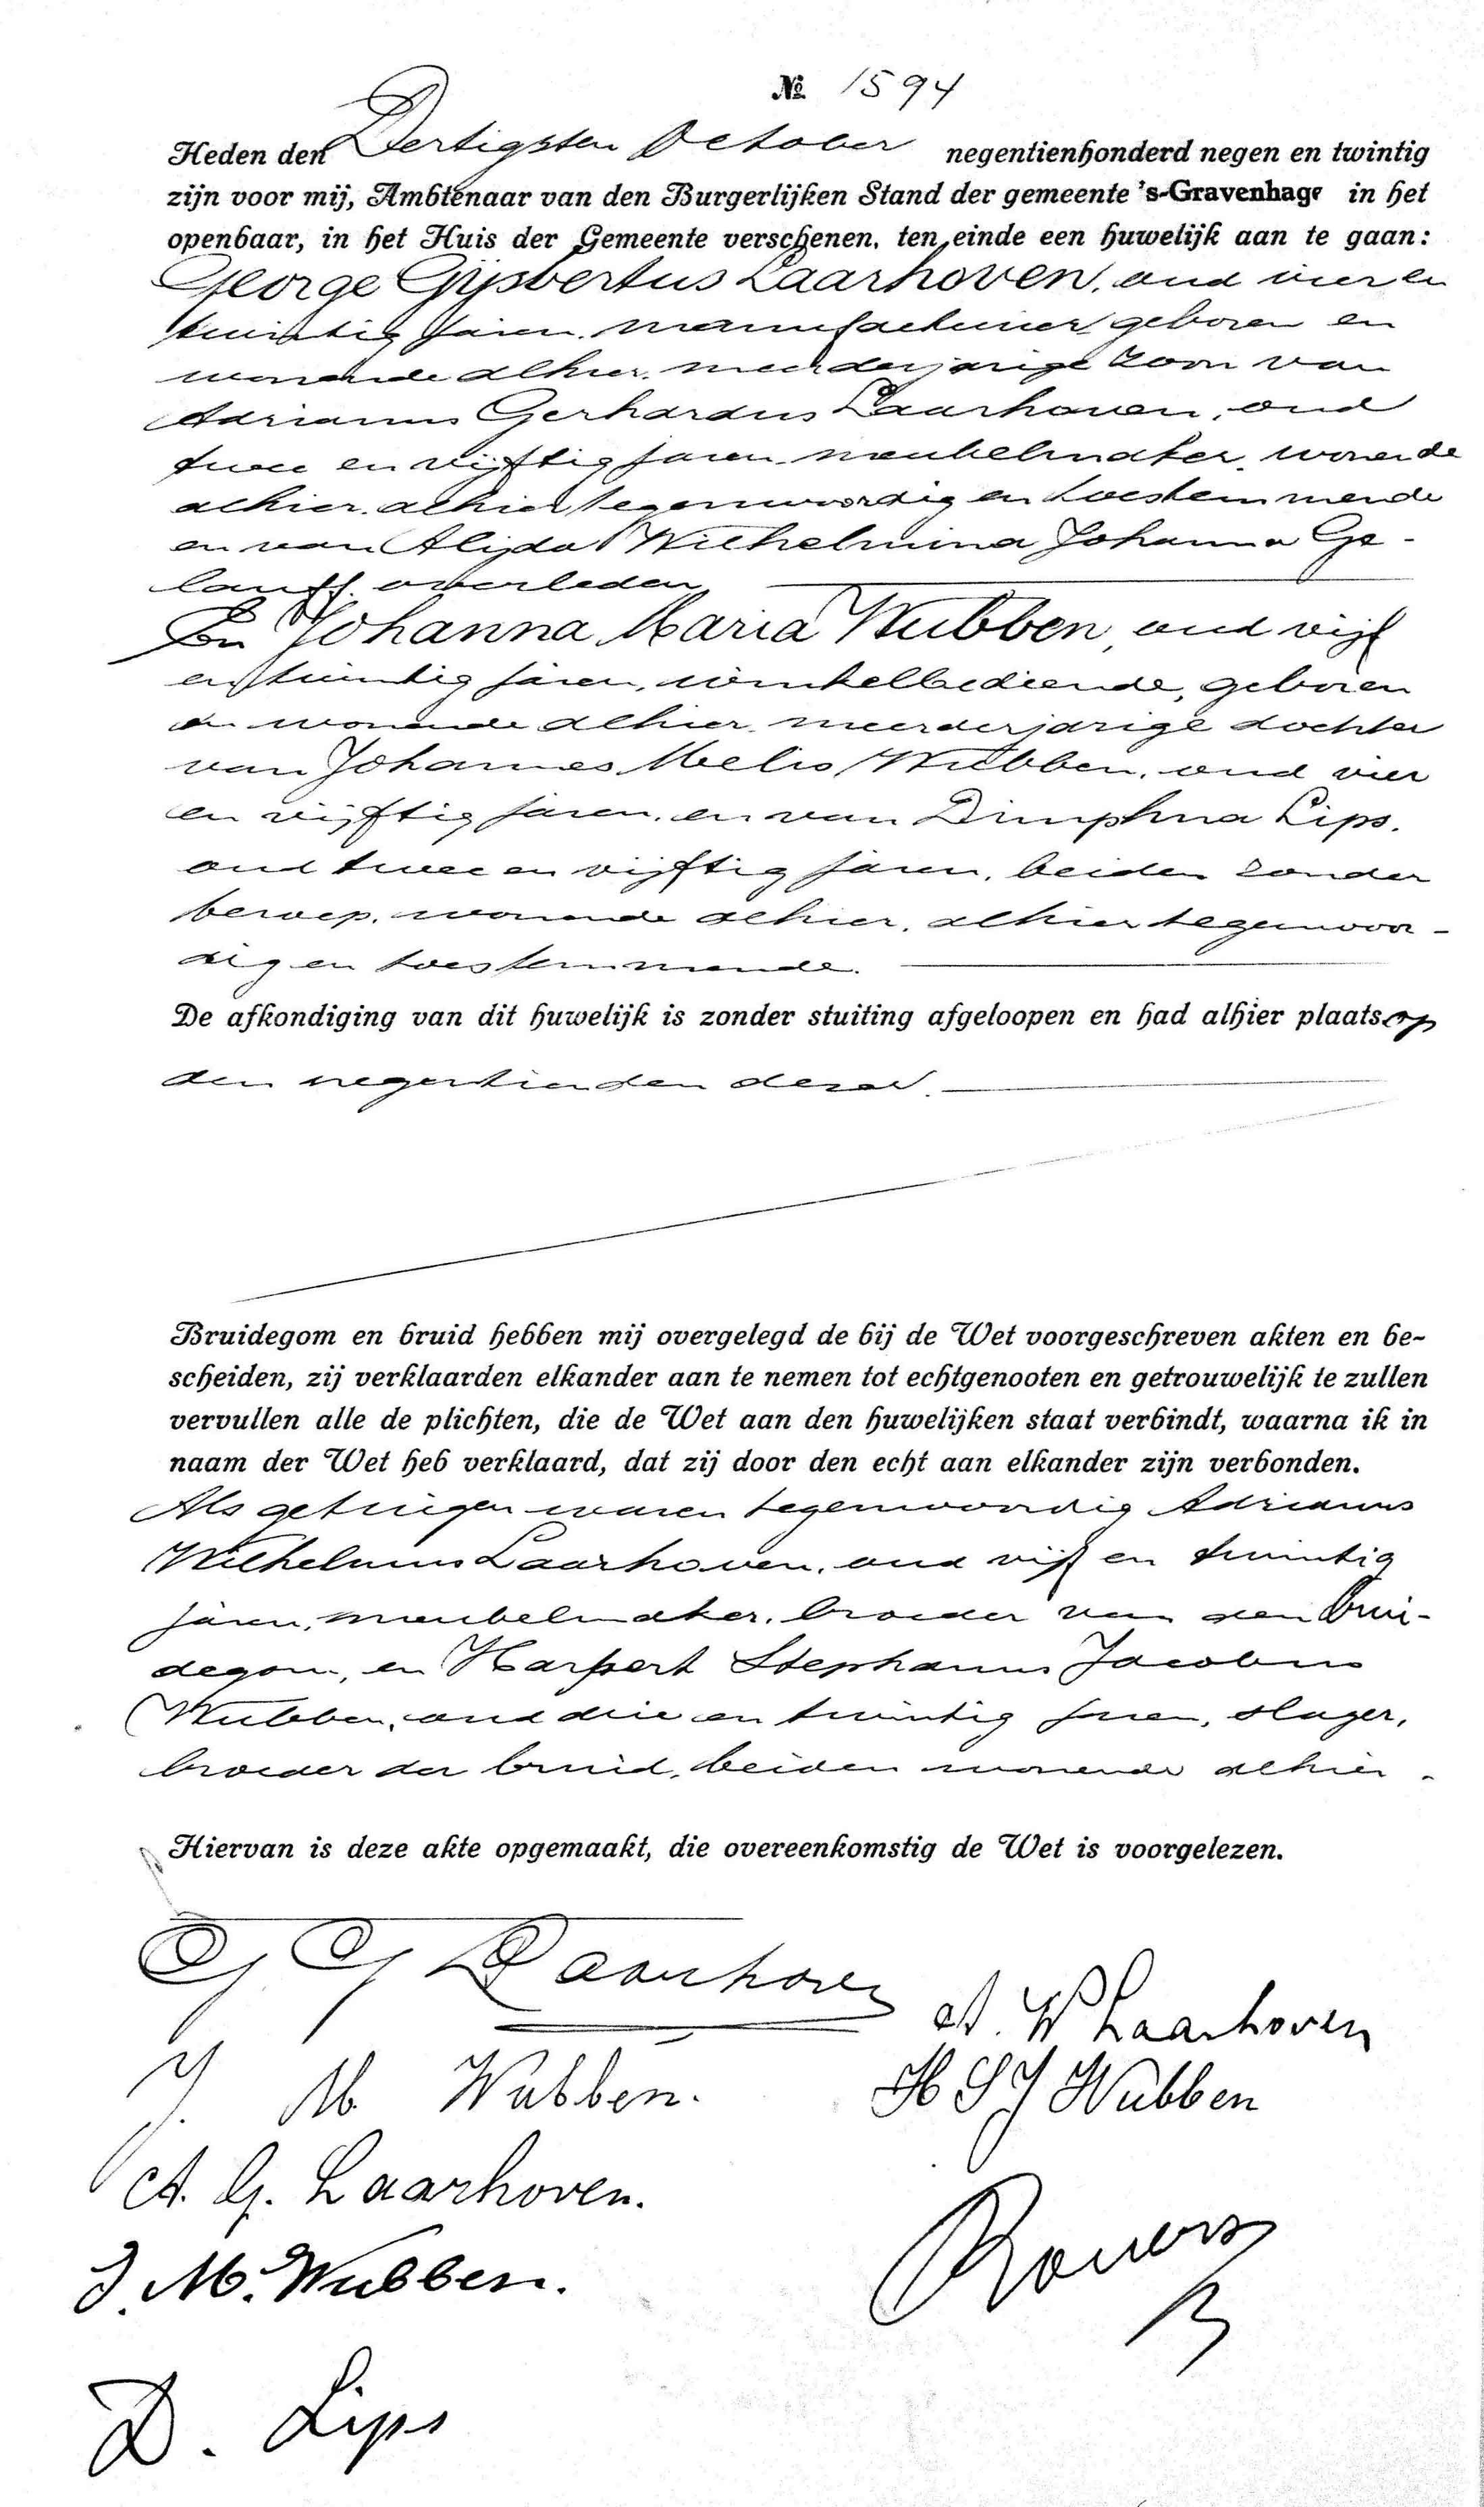 № 1594
Heden den Dertigsten October negentienhonderd negen en twintig
zijn voor mij, Ambtenaar van den Burgerlijken Stand der gemeente 's-Gravenhage in het
openbaar, in het Huis der Gemeente verschenen, ten einde een huwelijk aan te gaan:
George Gijsbertus Laarhoven, oud vier en
twintig jaren, manufacturier geboren en
wonende alhier, meerderjarige zoon van
Adrianus Gerhardus Laarhoven, oud
twee en vijftig jaren, meubelmaker, wonende
alhier, alhier tegenwoordig en toestemmende
en van Alijda Wilhelmina Johanna Ge-
lauff, overleden
En Johanna Maria Wubben, oud vijf
en twintig jaren, winkelbediende, geboren
en wonende alhier, meerderjarige dochter
van Johannes Melis Wubben, oud vier
en vijftig jaren, en van Dimphna Lips,
oud twee en vijftig jaren, beiden zonder
beroep, wonende alhier, alhier tegenwoor-
dig en toestemmende.
De afkondiging van dit huwelijk is zonder stuiting afgeloopen en had alhier plaats op
den negentienden dezer.
Bruidegom en bruid hebben mij overgelegd de bij de Wet voorgeschreven akten en be-
scheiden, zij verklaarden elkander aan te nemen tot echtgenooten en getrouwelijk te zullen
vervullen alle de plichten, die de Wet aan den huwelijken staat verbindt, waarna ik in
naam der Wet heb verklaard, dat zij door den echt aan elkander zijn verbonden.
Als getuigen waren tegenwoordig Adrianus
Wilhelmus Laarhoven, oud vijf en twintig
jaren, meubelmaker, broeder van den brui-
degom, en Harpert Stephanus Jacobus
Wubben, oud drie en twintig jaren, slager,
broeder der bruid, beiden wonende alhier.
Hiervan is deze akte opgemaakt, die overeenkomstig de Wet is voorgelezen.
G G Laarhoven
A. W Laarhoven
J. M. Wubben.
H S J Wubben
A. G. Laarhoven.
J. M. Wubben.
D. Lips